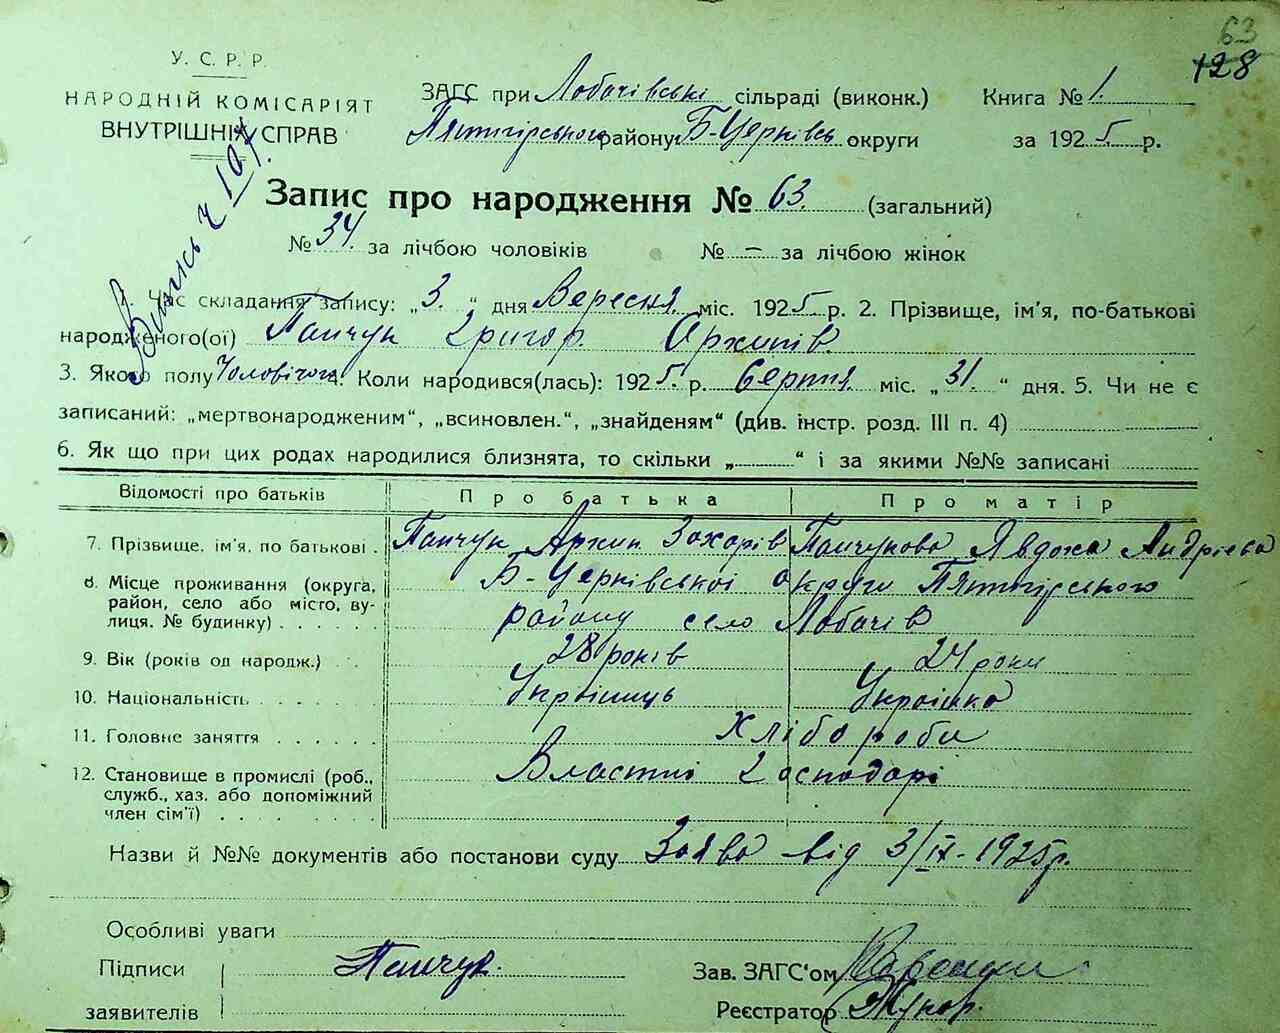 63
128
У. С. Р. Р.
НАРОДНІЙ КОМІСАРІЯТ
ВНУТРІШНІХ СПРАВ
ЗАГС при Лобачівські сільраді (виконк.) Книга № 1.
Пятигірського району Б-Церківсь округи за 1925 р.
Запис про народження № 63. (загальний)
№ 34. за лічбою чоловіків № – за лічбою жінок
1. Час складання запису: „3.“ дня Вересня міс. 1925 р. 2. Прізвище, ім'я, по-батькові
народженого(ої) Панчук Григор. Архипів.
3. Якого полу Чоловічого 4. Коли народився(лась): 1925. р. Серпня міс. „31.“ дня. 5. Чи не є
записаний: „мертвонародженим“, „всиновлен.“, „знайденям“ (див. інстр. розд. III п. 4)
6. Як що при цих родах народилися близнята, то скільки „ “ і за якими №№ записані
Відомості про батьків Про батька Про матір
7. Прізвище, ім'я, по батькові . Панчук Архип Захарів Панчукова Явдоха Андрієва
8. Місце проживання (округа, Б-Церківської округи Пятигірського
район, село або місто, ву- району село Лобачів
лиця. № будинку) . . . . . .
9. Вік (років од народж.) . . 28 років 24 роки
10. Національність . . . . . . Українець Українка
11. Головне заняття . . . . . . Хлібороби
12. Становище в промислі (роб., Властні Господарі
служб., хаз. або допоміжний
член сім'ї) . . . . . . .
Назви й №№ документів або постанови суду Заява від 3/IX-1925р.
Особливі уваги
Підписи Панчук. Зав. ЗАГС'ом
заявителів Реєстратор